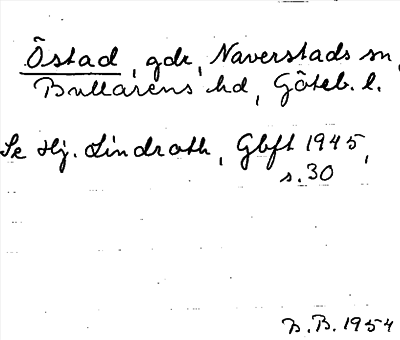 Östad, gdr, Naverstads sn,
Bullarens hd, Göteb. l.
Se Hj. Lindroth, Gbft 1945,
s. 30
B. B. 1954